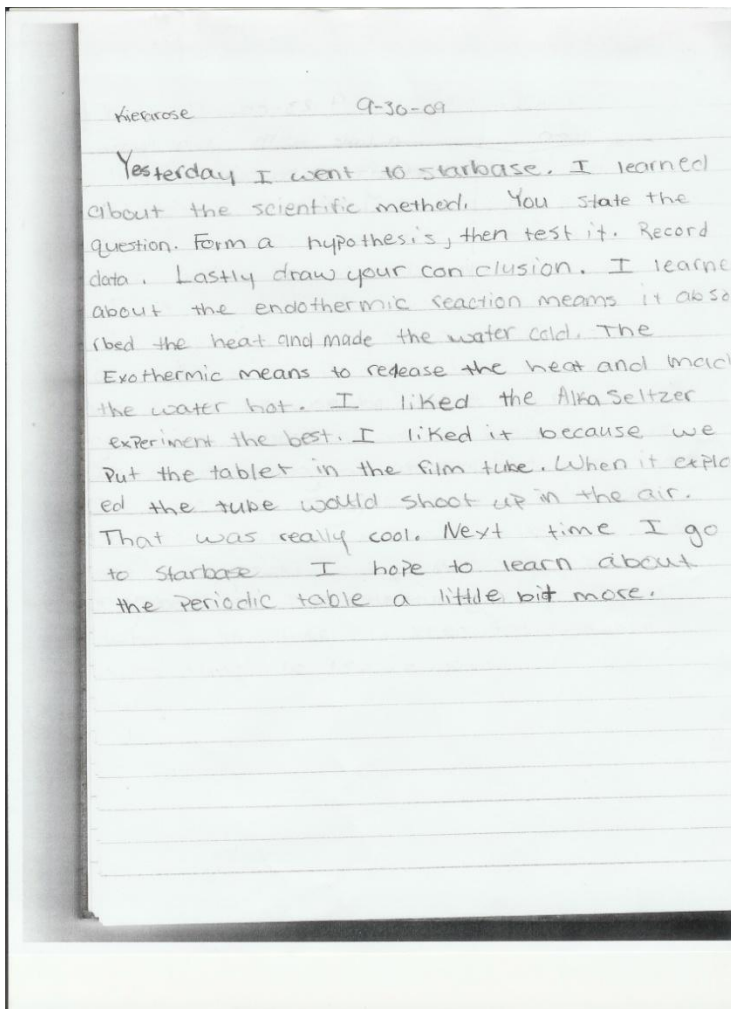 Kierarose 9-30-09
Yesterday I went to starbase. I learned
about the scientific method. You state the
question. Form a hypothesis, then test it. Record
data. Lastly draw your con clusion. I learne
about the endothermic reaction means it abso
rbed the heat and made the water cold. The
Exothermic means to redease the heat and mad
the water hot. I liked the Alka Seltzer
experiment the best. I liked it because we
Put the tablet in the film tube. When it explo
ed the tube would shoot up in the air.
That was really cool. Next time I go
to starbase I hope to learn about
the Periodic table a little bit more.